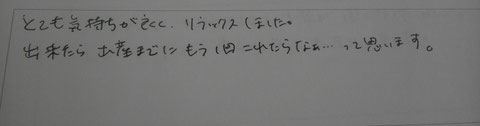 とても気持ちが良く、リラックスしました。
出来たら出産までにもう1回これたらなぁ…って思います。